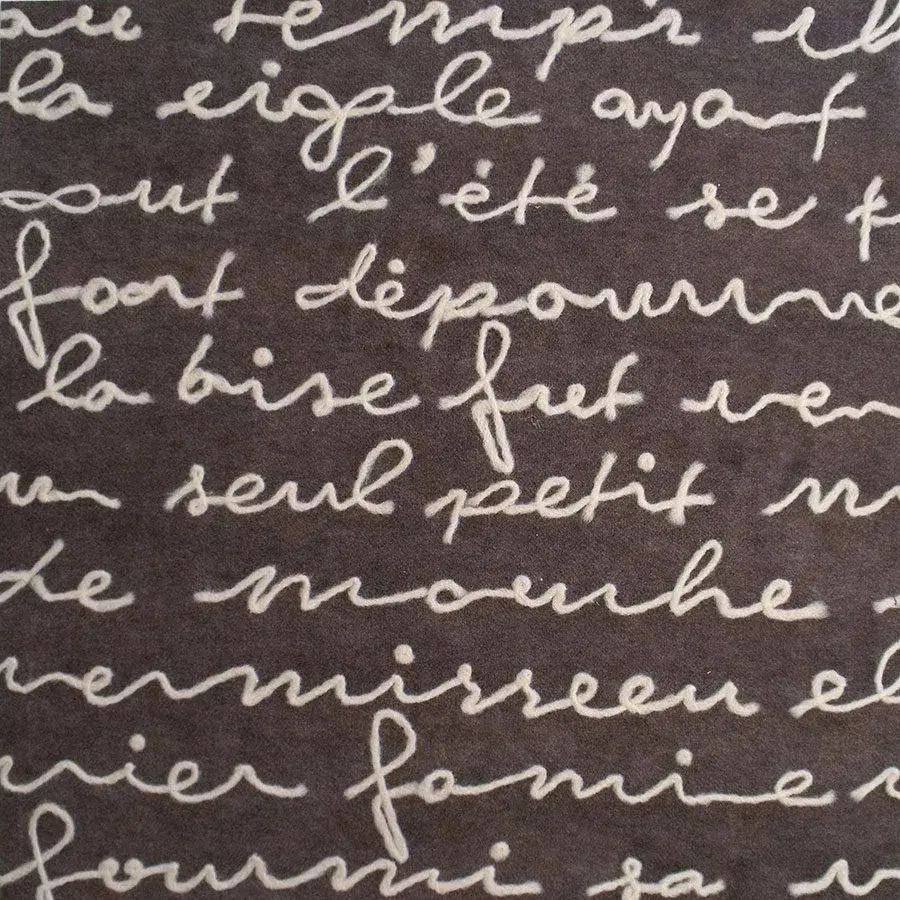 au temps il
la cigale ayant
out l'été se
fort dépourvue
la bise fut ven
un seul petit
de mouche
vermisseau el
famine
fourmi sa v